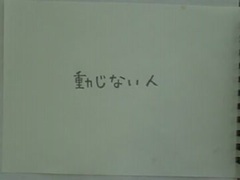 動じない人